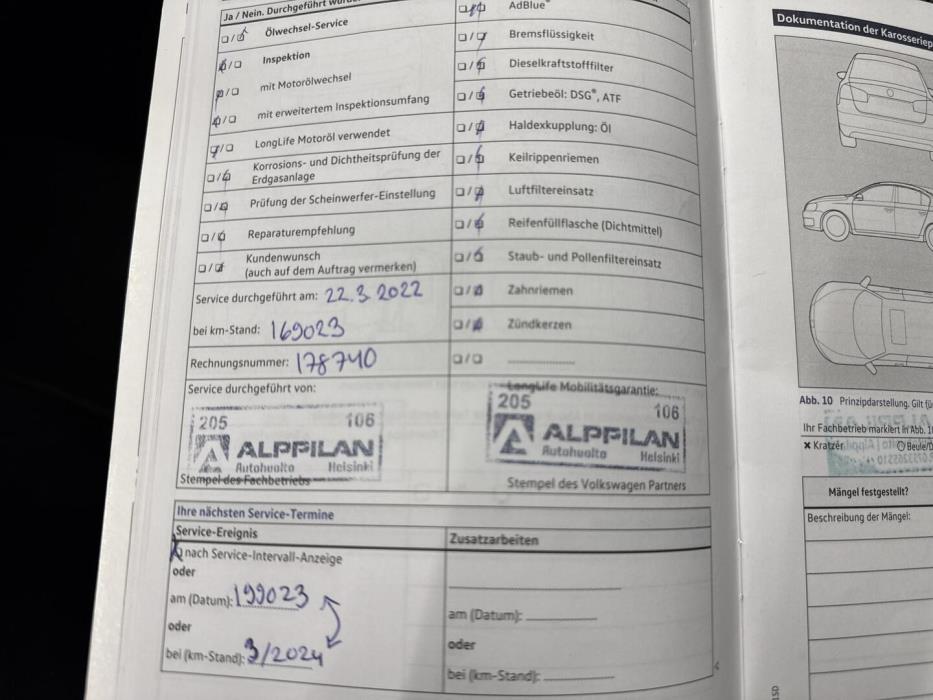 Ja / Nein. Durchgeführt
Ölwechsel-Service
Inspektion
mit Motorölwechsel
mit erweitertem Inspektionsumfang
LongLife Motoröl verwendet
Korrosions- und Dichtheitsprüfung der
Erdgasanlage
Prüfung der Scheinwerfer-Einstellung
Reparaturempfehlung
Kundenwunsch
(auch auf dem Auftrag vermerken)
Service durchgeführt am: 22.3.2022
bei km-Stand: 169023
Rechnungsnummer: 178740
Service durchgeführt von:
205 106
ALPPILAN
Autohuolto Helsinki
Stempel des Fachbetriebs
AdBlue®
Bremsflüssigkeit
Dieselkraftstofffilter
Getriebeöl: DSG®, ATF
Haldexkupplung: Öl
Keilrippenriemen
Luftfiltereinsatz
Reifenfüllflasche (Dichtmittel)
Staub- und Pollenfiltereinsatz
Zahnriemen
Zündkerzen
LongLife Mobilitätsgarantie:
205 106
ALPPILAN
Autohuolto Helsinki
Stempel des Volkswagen Partners
Ihre nächsten Service-Termine
Service-Ereignis
nach Service-Intervall-Anzeige
oder
am (Datum): 199023
oder
bei (km-Stand): 3/2024
Zusatzarbeiten
am (Datum):
oder
bei (km-Stand):
Dokumentation der
Abb. 10 Prinzipdarstellung. Gilt
Ihr Fachbetrieb markiert in Abb.
Kratzer
Mängel festgestellt?
Beschreibung der Mängel: